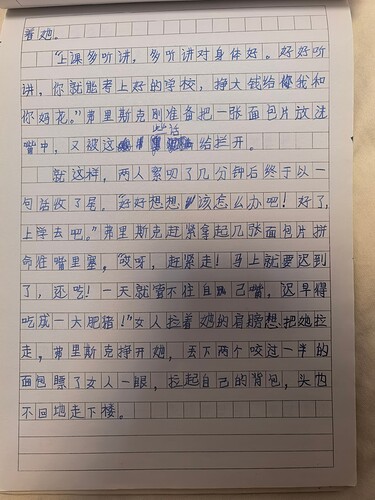 着她。
“上课多听讲，多听讲对身体好。好好听
讲，你就能考上好的学校，挣大钱给你我和
你妈花。”弗里斯克刚准备把一张面包片放进
嘴中，又被这些话给拦开。
就这样，两人絮叨了几分钟后终于以一
句话收了尾。“好好想想该怎么办吧！好了，
上学去吧。”弗里斯克赶紧拿起几张面包片拼
命往嘴里塞，“哎呀，赶紧走！马上就要迟到
了，还吃！一天就管不住自己嘴。迟早得
吃成一大肥猪！”女人拉着她的肩膀想把她拉
走，弗里斯克挣开她，丢下两个咬过一半的
面包瞟了女人一眼，拉起自己的背包，头也
不回地走下楼。